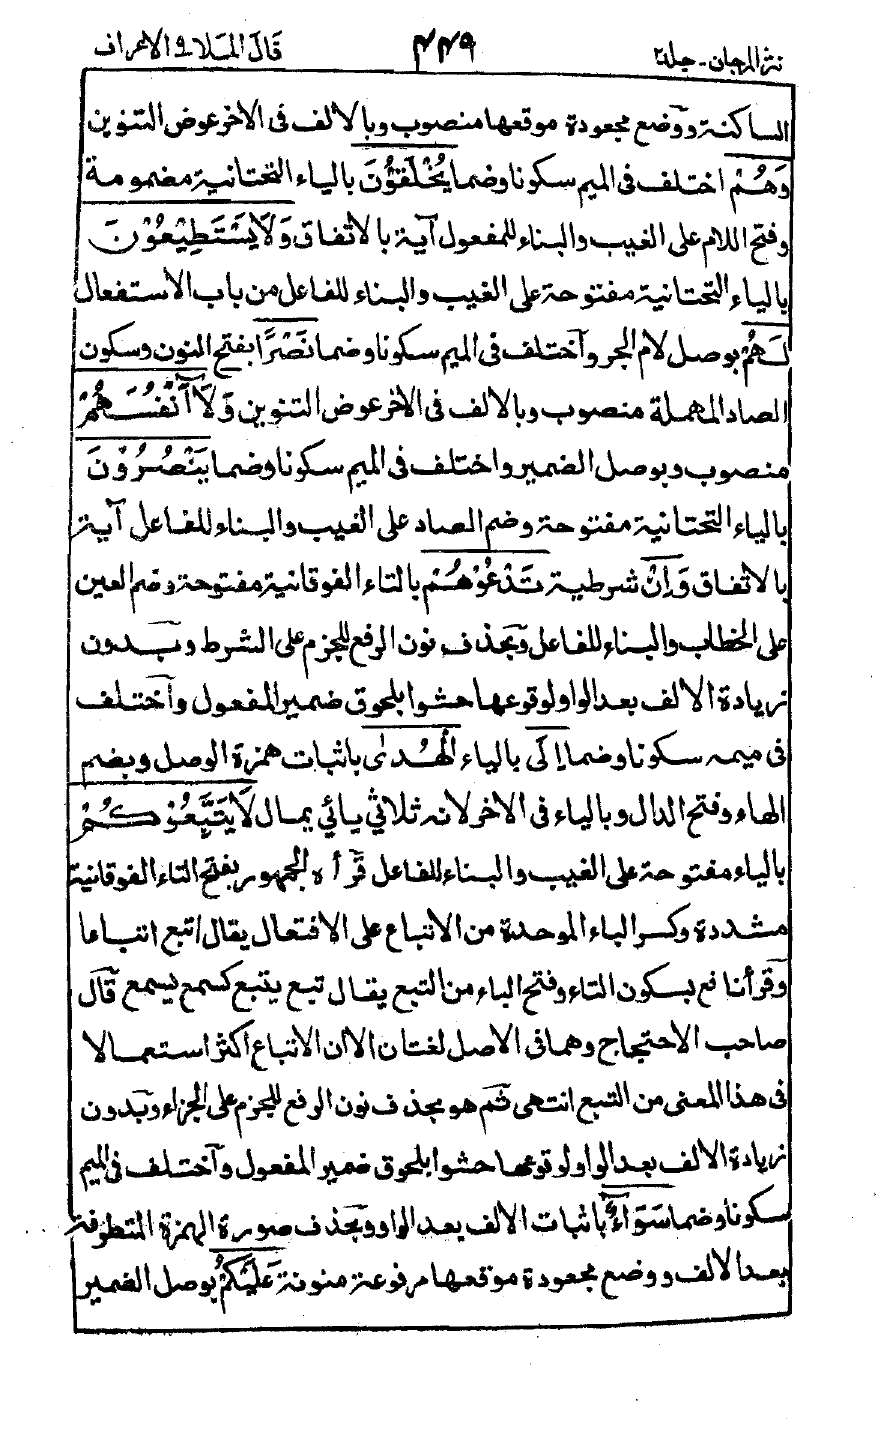 نثر المرجان - جلد ٢ ٤٤٩ قال الملا ٩ الاعراف
الساكنة ووضع مجعودة موقعها منصوب وبالالف فى الاخر عوض التنوين
وَهُمْ اختلف فى الميم سكونا وضما يُخْلَقُوْنَ بالياء التحتانية مضمومة
وفتح اللام على الغيب والبناء للمفعول آية بالاتفاق وَلَا يَسْتَطِيْعُوْنَ
بالياء التحتانية مفتوحة على الغيب والبناء للفاعل من باب الاستفعال
لَهُمْ بوصل لام الجر واختلف فى الميم سكونا وضما نَصْرًا بفتح النون وسكون
الصاد المهملة منصوب وبالالف فى الاخر عوض التنوين وَلَآ اَنْفُسَهُمْ
منصوب وبوصل الضمير واختلف فى الميم سكونا وضما يَنْصُرُوْنَ
بالياء التحتانية مفتوحة وضم الصاد على الغيب والبناء للفاعل آية
بالاتفاق وَاِنْ شرطية تَدْعُوْهُمْ بالتاء الفوقانية مفتوحة وضم العين
على الخطاب والبناء للفاعل وبحذف نون الرفع للجزم على الشرط وبدون
زيادة الالف بعد الواو لوقوعها حشوا بلحوق ضمير المفعول واختلف
فى ميمه سكونا وضما اِلَى بالياء الْهُدٰى باثبات همزة الوصل وبضم
الهاء وفتح الدال وبالياء فى الاخر لانه ثلاثي يائي يمال لَا يَتَّبِعُوْكُمْ
بالياء مفتوحة على الغيب والبناء للفاعل قرأه الجمهور بفتح التاء الفوقانية
مشددة وكسر الباء الموحدة من الاتباع على الافتعال يقال اتبع اتباعا
وقرأ نافع بسكون التاء وفتح الباء من التبع يقال تبع يتبع كسمع يسمع قال
صاحب الاحتجاج وهما فى الاصل لغتان الا ان الاتباع اكثر استعمالا
فى هذا المعنى من التبع انتهى ثم هو بحذف نون الرفع للجزم على الجزاء وبدون
زيادة الالف بعد الواو لوقوعها حشوا بلحوق ضمير المفعول واختلف فى الميم
سكونا وضما سَوَآءٌ باثبات الالف بعد الواو وبحذف صورة الهمزة المتطرفة
بعد الالف ووضع مجعودة موقعها مرفوعة منونة عَلَيْكُمْ بوصل الضمير